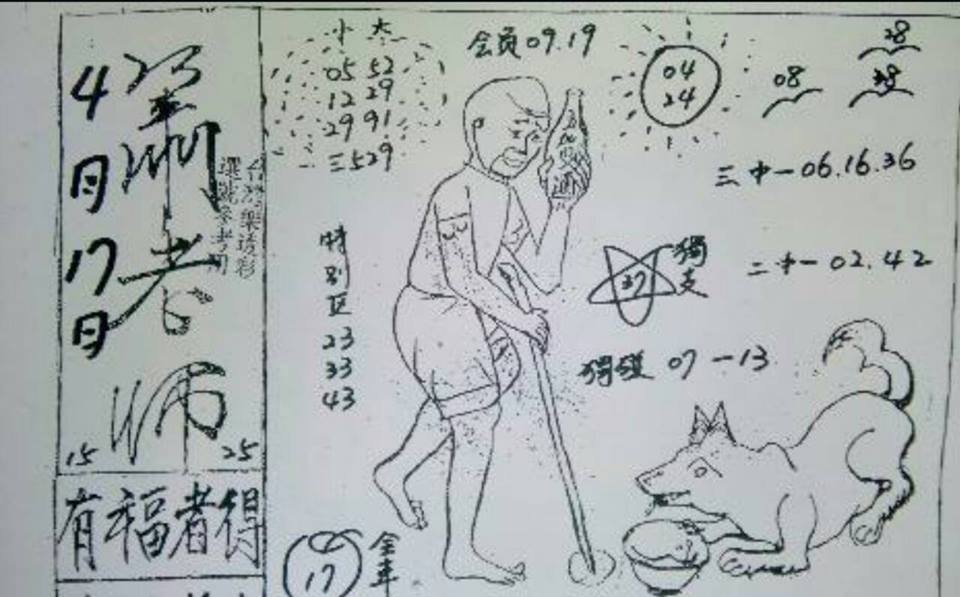 4月17日
蕭老師
台灣樂透彩
選號參考用
15
25
有福者得
小 大
05 52
12 29
29 91
三529
会员09.19
04
24
08
28
38
三中一06.16.36
特別区
23
33
43
37
獨支
二中一02.42
獨碰 07一13
17
全車